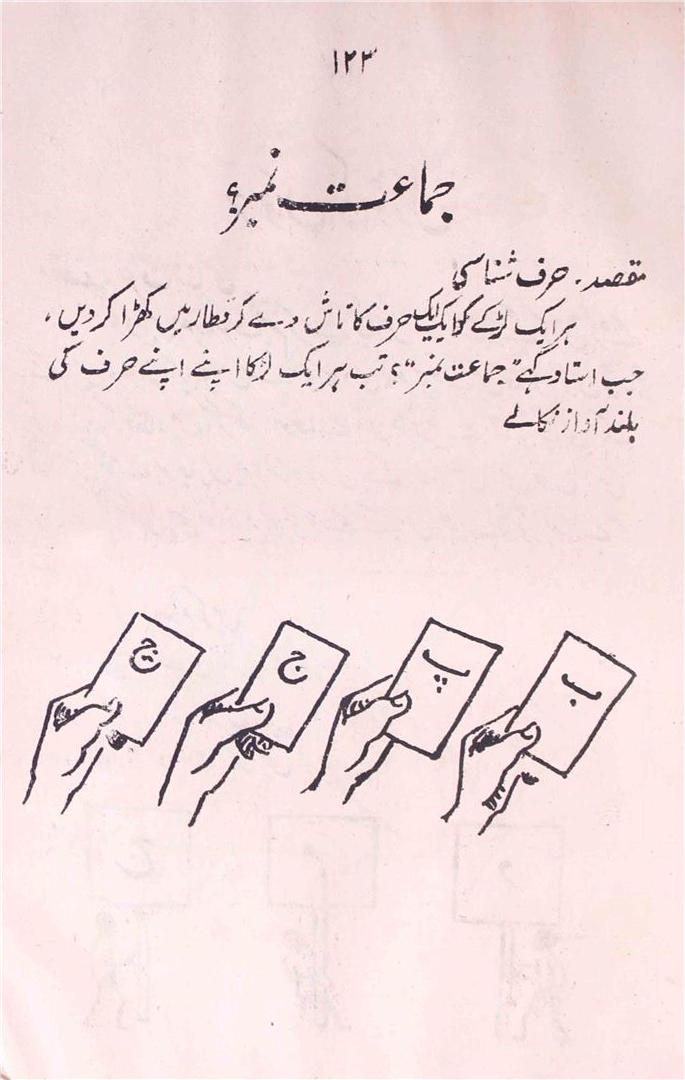 ۱۲۳
جماعت نمبر؟
مقصد۔ حرف شناسی
ہر ایک لڑکے کو ایک ایک حرف کا تاش دے کر قطار میں کھڑا کر دیں،
جب استاد کہے "جماعت نمبر"؟ تب ہر ایک لڑکا اپنے اپنے حرف کی
بلند آواز نکالے
ب پ ج چ